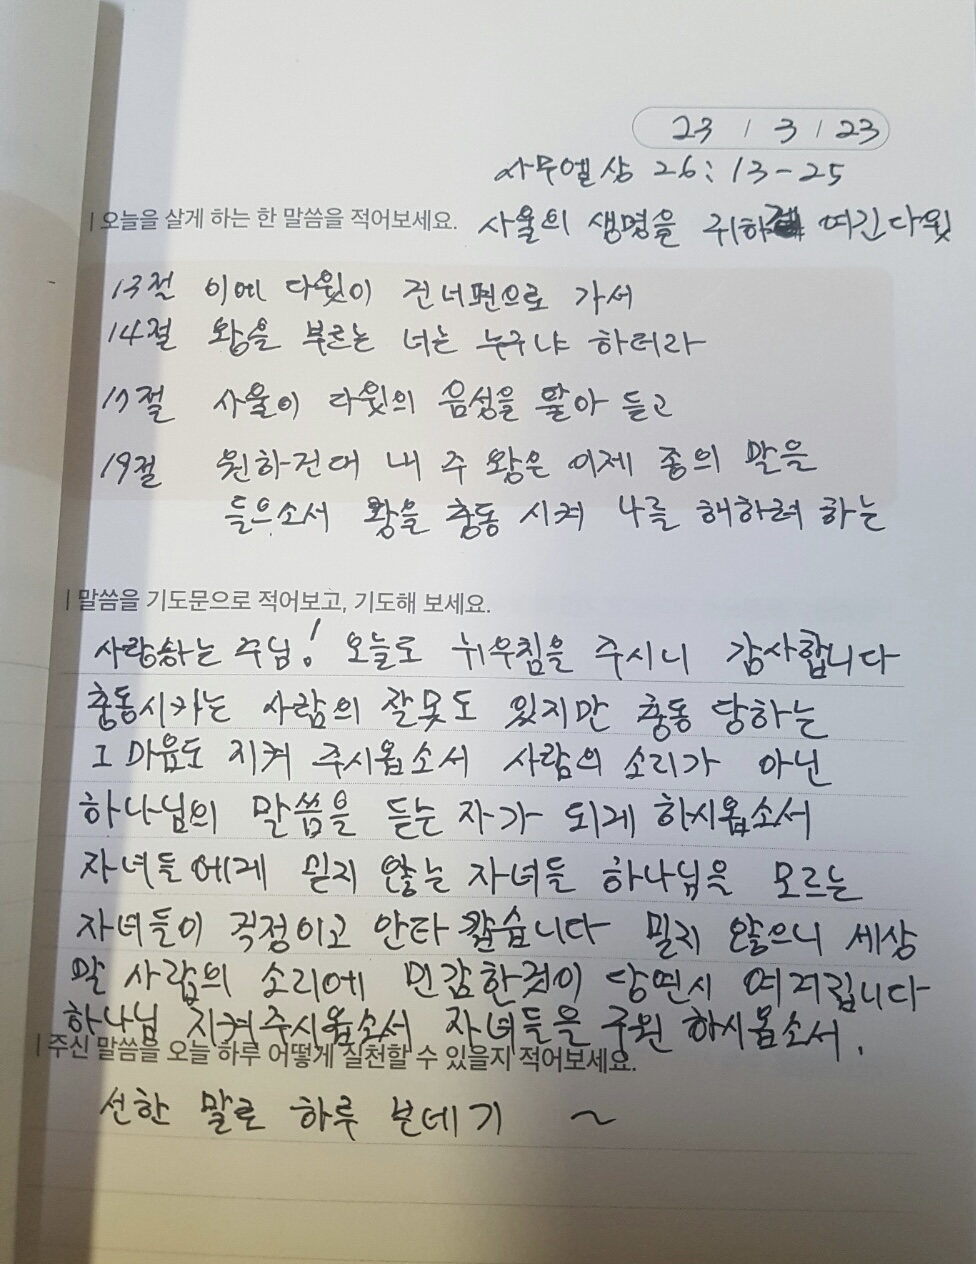 23 / 3 / 23
사무엘상 26:13-25
| 오늘을 살게 하는 한 말씀을 적어보세요. 사울의 생명을 귀하게 여긴 다윗
13절 이에 다윗이 건너편으로 가서
14절 왕을 부르는 너는 누구냐 하더라
17절 사울이 다윗의 음성을 알아 듣고
19절 원하건대 내 주 왕은 이제 종의 말을
들으소서 왕을 충동 시켜 나를 해하려 하는
| 말씀을 기도문으로 적어보고, 기도해 보세요.
사랑하는 주님! 오늘도 뉘우침을 주시니 감사합니다
충동시키는 사람의 잘못도 있지만 충동 당하는
그 마음도 지켜 주시옵소서 사람의 소리가 아닌
하나님의 말씀을 듣는 자가 되게 하시옵소서
자녀들에게 믿지 않는 자녀들 하나님을 모르는
자녀들이 걱정이고 안타 깝습니다 믿지 않으니 세상
말 사람의 소리에 민감한것이 당연시 여겨집니다
하나님 지켜주시옵소서 자녀들을 구원 하시옵소서.
| 주신 말씀을 오늘 하루 어떻게 실천할 수 있을지 적어보세요.
선한 말로 하루 보내기 ~